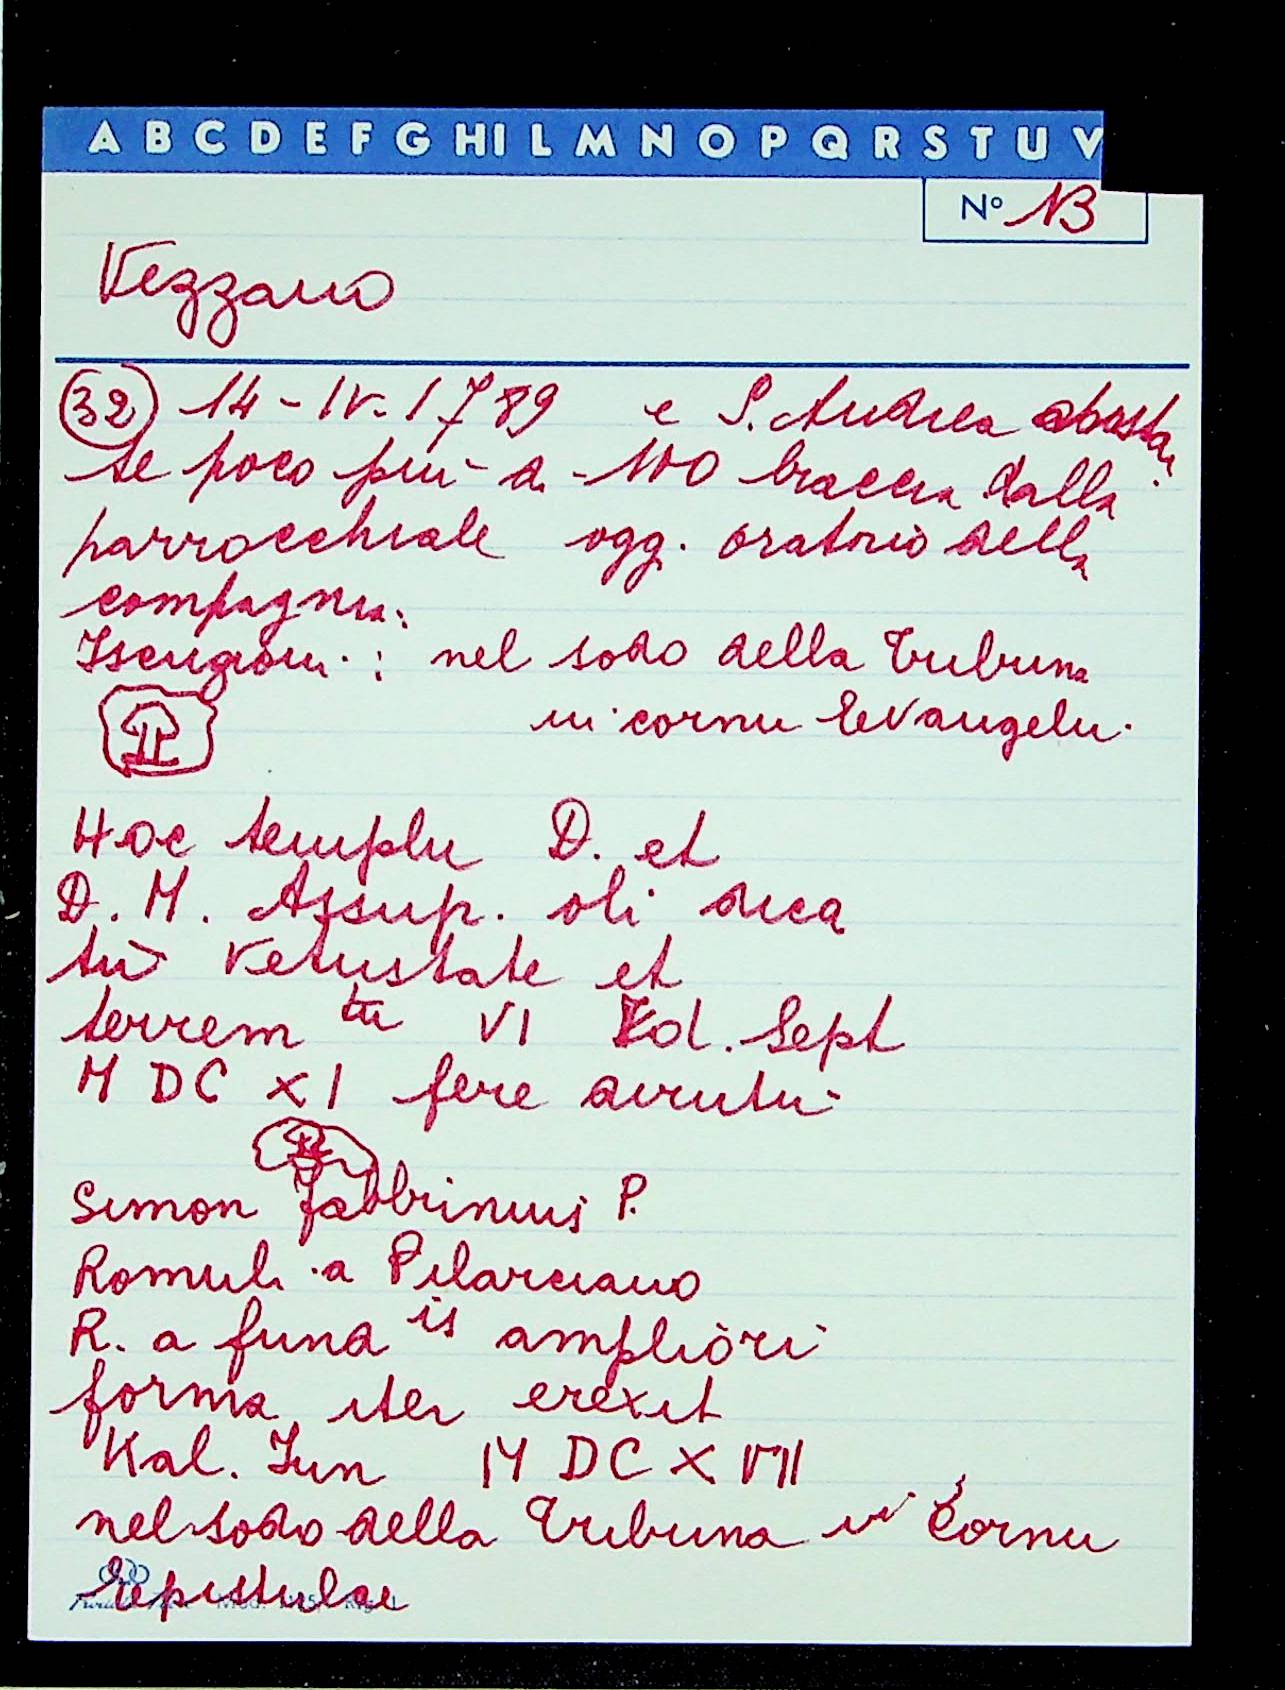 A B C D E F G H I L M N O P Q R S T U V
N° NB
Vezzano
32 14-IV-1789 e S. Andrea abastan
te poco più di 100 braccia dalla
parrocchiale ogg. oratorio della
compagnia.
Iscrizioni: nel sodo della Tribuna
in cornu Evangelii.
Hoc templu D. et
D. M. Assup. oli dica
tū vetustate et
terrem tu VI Kal. Sept
M DC XI fere dirutu
Simon Fabbrinius P.
Romuli a Pilarciano
R. a funda is ampliori
forma iter erexit
Kal. Jun M DC X VII
nel sodo della Tribuna in Cornu
Epistulae